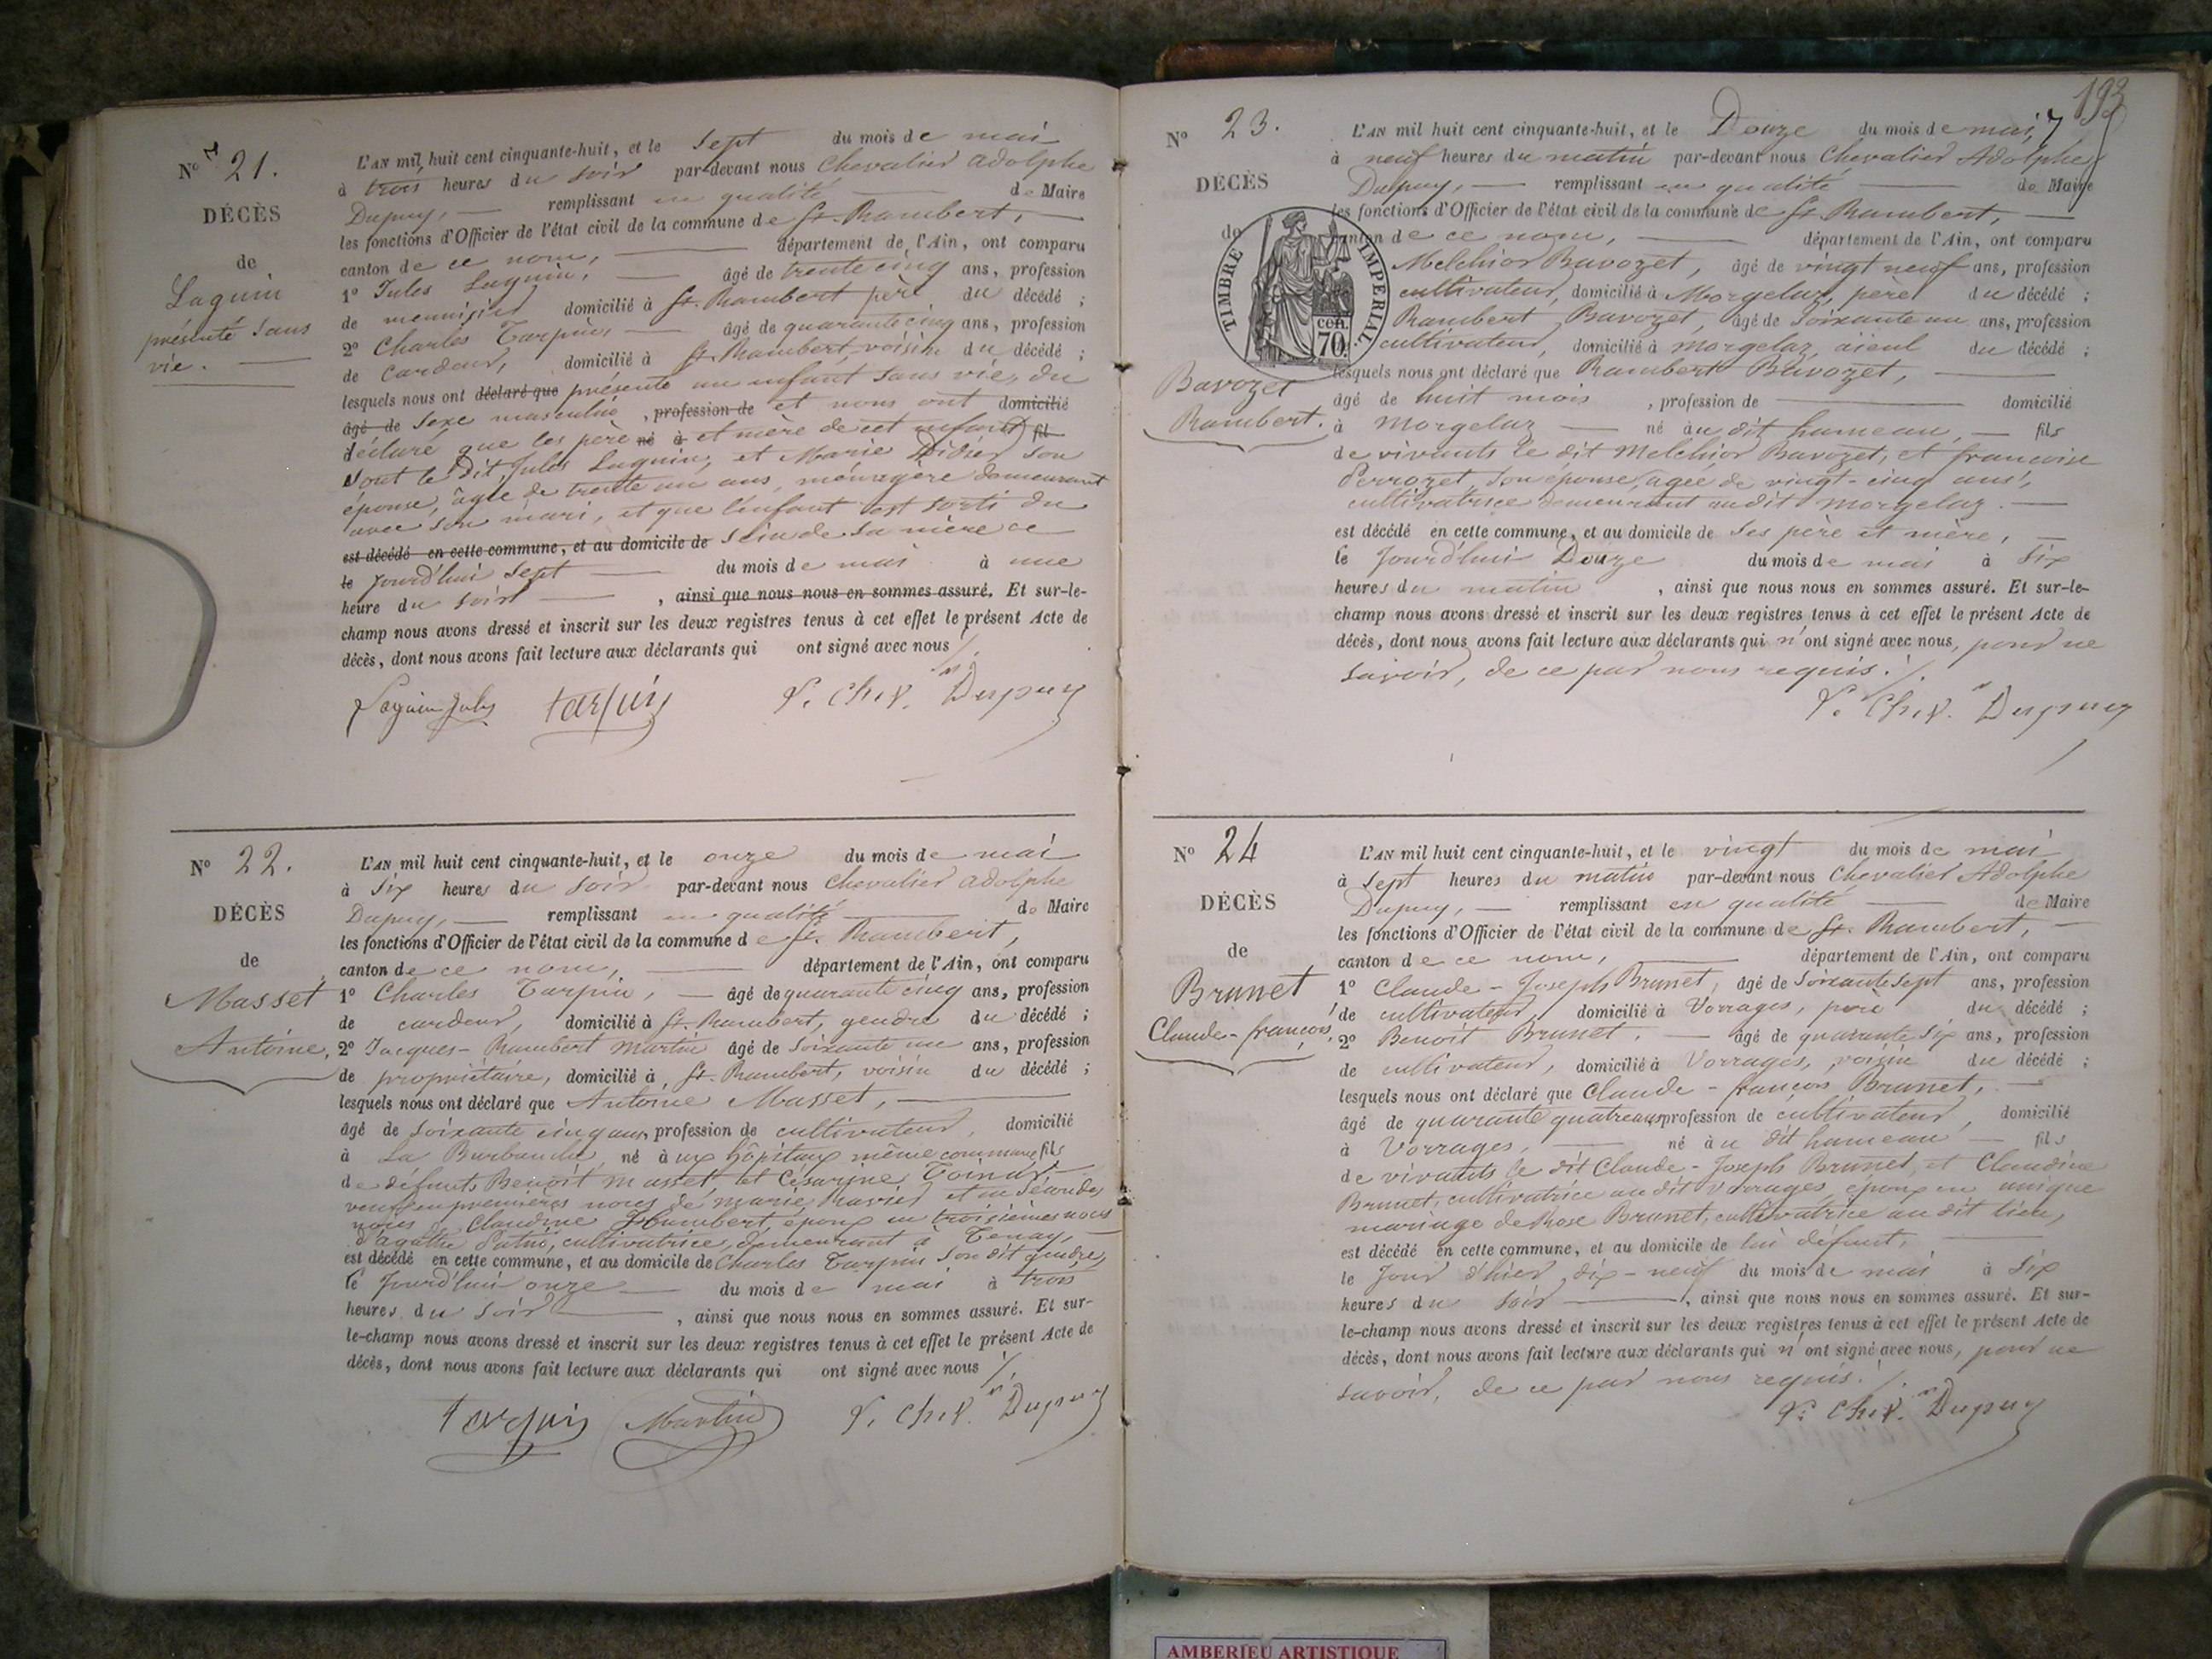 No 21.
DÉCÈS
de
Laguin
présenté sans
vie.
L'AN mil huit cent cinquante-huit, et le sept du mois de mai
à trois heures du soir par-devant nous Chevalier Adolphe
Dupuy, remplissant en qualité de Maire
les fonctions d'Officier de l'état civil de la commune de St. Rambert,
canton de ce nom, département de l'Ain, ont comparu
1o Jules Laguin, âgé de trente cinq ans, profession
de menuisier domicilié à St. Rambert père du décédé ;
2o Charles Tarpin, âgé de quarante cinq ans, profession
de cardeur, domicilié à St. Rambert, voisin du décédé ;
lesquels nous ont déclaré que présenté un enfant sans vie, du
âgé de sexe masculin, profession de et nous ont domicilié
déclaré que les père né à et mère de cet enfant fil
sont le dit Jules Laguin, et Marie Didier son
épouse, âgée de trente un ans, ménagère demeurant
avec son mari, et que l'enfant est sorti du
est décédé en cette commune, et au domicile de sein de sa mère ce
le jourd'hui sept du mois de mai à une
heure du soir, ainsi que nous nous en sommes assuré. Et sur-le-
champ nous avons dressé et inscrit sur les deux registres tenus à cet effet le présent Acte de
décès, dont nous avons fait lecture aux déclarants qui ont signé avec nous ./.
Laguin Jules tarpin Chev. Dupuy
No 22.
DÉCÈS
de
Masset
Antoine,
L'AN mil huit cent cinquante-huit, et le onze du mois de mai
à six heures du soir par-devant nous Chevalier Adolphe
Dupuy, remplissant en qualité de Maire
les fonctions d'Officier de l'état civil de la commune de St. Rambert,
canton de ce nom, département de l'Ain, ont comparu
1o Charles Tarpin, âgé de quarante cinq ans, profession
de cardeur, domicilié à St. Rambert, gendre du décédé ;
2o Jacques-Rambert Martin âgé de soixante un ans, profession
de propriétaire, domicilié à St. Rambert, voisin du décédé ;
lesquels nous ont déclaré que Antoine Masset,
âgé de soixante cinq ans, profession de cultivateur, domicilié
à La Burbanche, né à ux hôpitaux même commune fils
de défunts Benoît Masset et Césarine
veuf en premières noces de Marie et en secondes
noces de Claudine Humbert, époux en troisièmes noces
d'agathe, cultivatrice, demeurant à Tenay,
est décédé en cette commune, et au domicile de Charles Tarpin son dit gendre,
le jourd'hui onze du mois de mai à trois
heures du soir, ainsi que nous nous en sommes assuré. Et sur-
le-champ nous avons dressé et inscrit sur les deux registres tenus à cet effet le présent Acte de
décès, dont nous avons fait lecture aux déclarants qui ont signé avec nous ./.
tarpin Martin Chev. Dupuy
193
No 23.
DÉCÈS
de
TIMBRE IMPERIAL.
cen. 70.
Bavozet
Rambert.
L'AN mil huit cent cinquante-huit, et le Douze du mois de mai,
à neuf heures du matin par-devant nous Chevalier Adolphe
Dupuy, remplissant en qualité de Maire
les fonctions d'Officier de l'état civil de la commune de St. Rambert,
canton de ce nom, département de l'Ain, ont comparu
Melchior Bavozet, âgé de vingt neuf ans, profession
cultivateur, domicilié à Morgelaz, père du décédé ;
Rambert Bavozet, âgé de soixante un ans, profession
cultivateur, domicilié à morgelaz, aïeul du décédé ;
lesquels nous ont déclaré que Rambert Bavozet,
âgé de huit mois, profession de domicilié
à Morgelaz né au dit hameau, fils
de vivants le dit Melchior Bavozet, et françoise
Perrozet, son épouse, âgée de vingt-cinq ans,
cultivatrice demeurant au dit Morgelaz.
est décédé en cette commune, et au domicile de ses père et mère,
le jourd'hui Douze du mois de mai à six
heures du matin, ainsi que nous nous en sommes assuré. Et sur-le-
champ nous avons dressé et inscrit sur les deux registres tenus à cet effet le présent Acte de
décès, dont nous avons fait lecture aux déclarants qui n'ont signé avec nous, pour ne
savoir, de ce par nous requis. ./.
Chev. Dupuy
No 24
DÉCÈS
de
Brunet
Claude-françois,
L'AN mil huit cent cinquante-huit, et le vingt du mois de mai
à sept heures du matin par-devant nous Chevalier Adolphe
Dupuy, remplissant en qualité de Maire
les fonctions d'Officier de l'état civil de la commune de St. Rambert,
canton de ce nom, département de l'Ain, ont comparu
1o Claude-Joseph Brunet, âgé de soixante sept ans, profession
de cultivateur, domicilié à Vorrages, père du décédé ;
2o Benoît Brunet, âgé de quarante six ans, profession
de cultivateur, domicilié à Vorrages, voisin du décédé ;
lesquels nous ont déclaré que Claude-françois Brunet,
âgé de quarante quatre ans, profession de cultivateur, domicilié
à Vorrages, né à u dit hameau fils
de vivants le dit Claude-Joseph Brunet, et Claudine
Brunet, cultivatrice au dit Vorrages époux en unique
mariage de Rose Brunet, cultivatrice au dit lieu,
est décédé en cette commune, et au domicile de lui défunt,
le jour d'hier dix-neuf du mois de mai à six
heures du soir, ainsi que nous nous en sommes assuré. Et sur-
le-champ nous avons dressé et inscrit sur les deux registres tenus à cet effet le présent Acte de
décès, dont nous avons fait lecture aux déclarants qui n'ont signé avec nous, pour ne
savoir, de ce par nous requis. ./.
Chev. Dupuy
AMBERIEU ARTISTIQUE